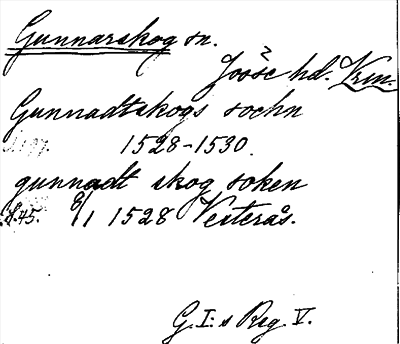 Gunnarskog sn.
Jösse hd. Vrm.
Gunnadtskogs sochn
s. 197. 1528-1530.
gunnadt skog soken
s. 45. 8/1 1528 Vesterås.
G. I:s Reg. V.